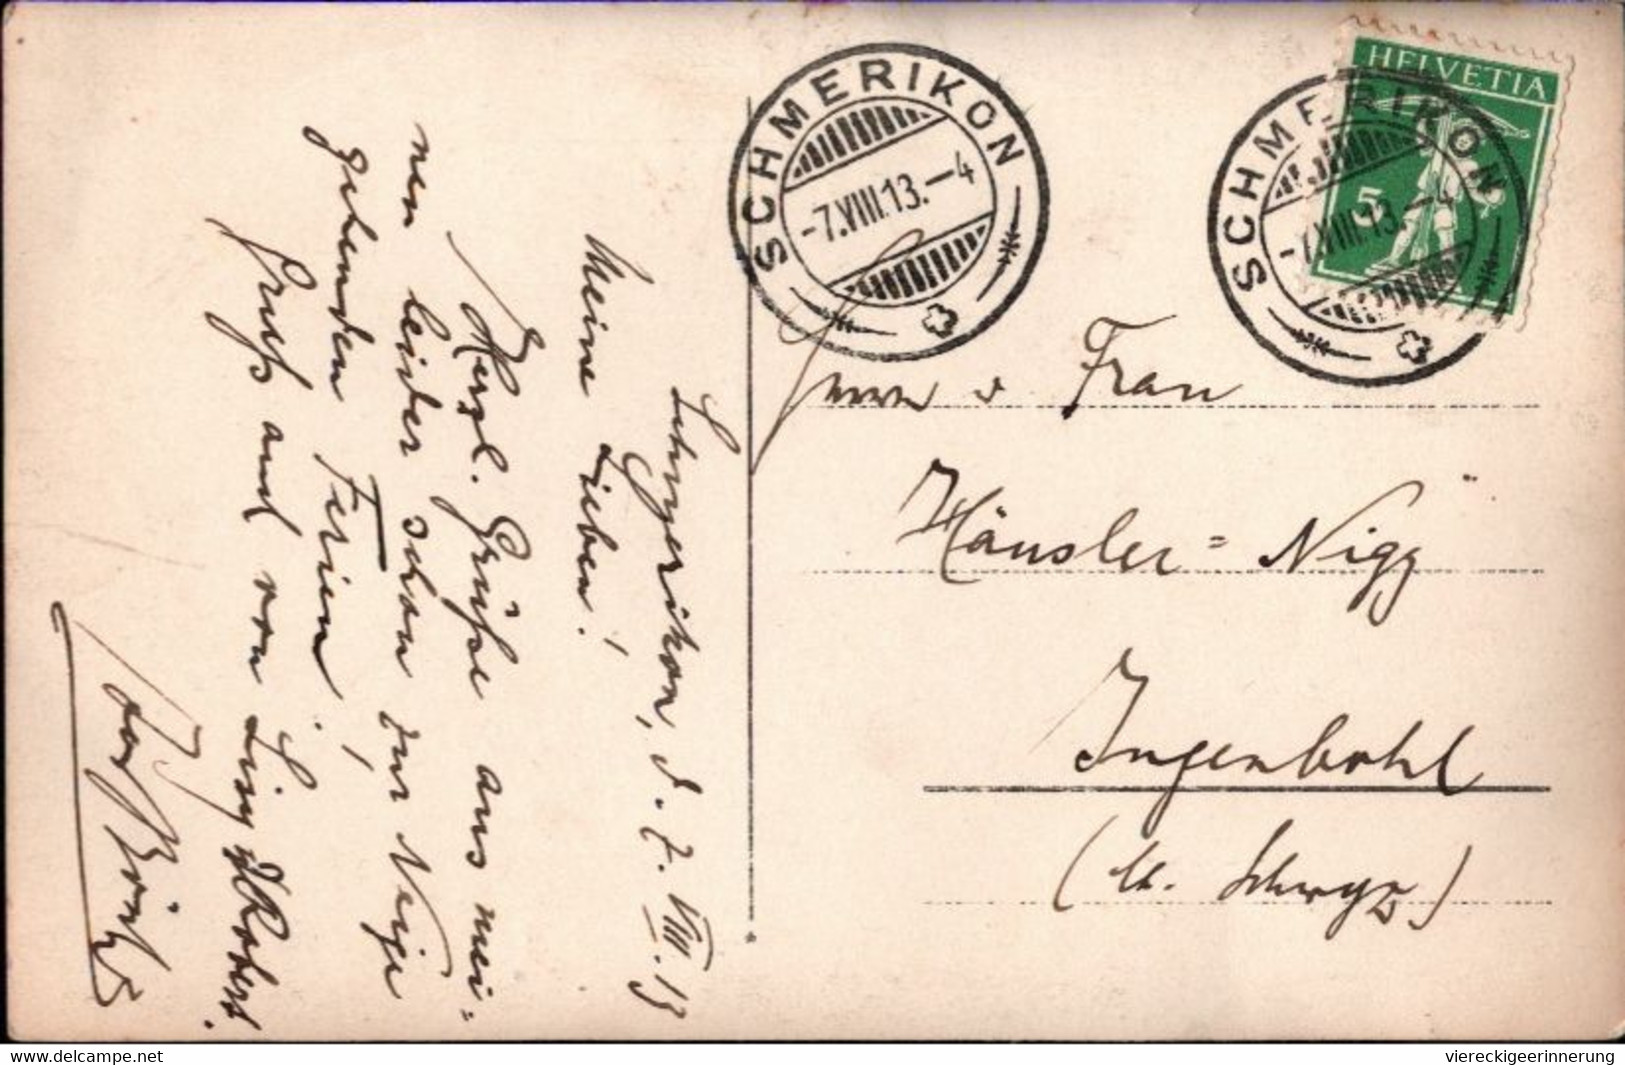 SCHMERIKON
-7.VIII.13.-4
HELVETIA
5
SCHMERIKON
-7.VIII.13.-4
Schmerikon, d. 7. VIII. 13
Meine Lieben!
Herzl. Grüsse aus mei=
nen leider schon zur Neige
gehenden Ferien.
Gruss auch von Liny & Robert.
Herrn & Frau
Häusler=Nigg
Ingenbohl
(Kt. Schwyz)
www.delcampe.net
viereckigeerinnerung